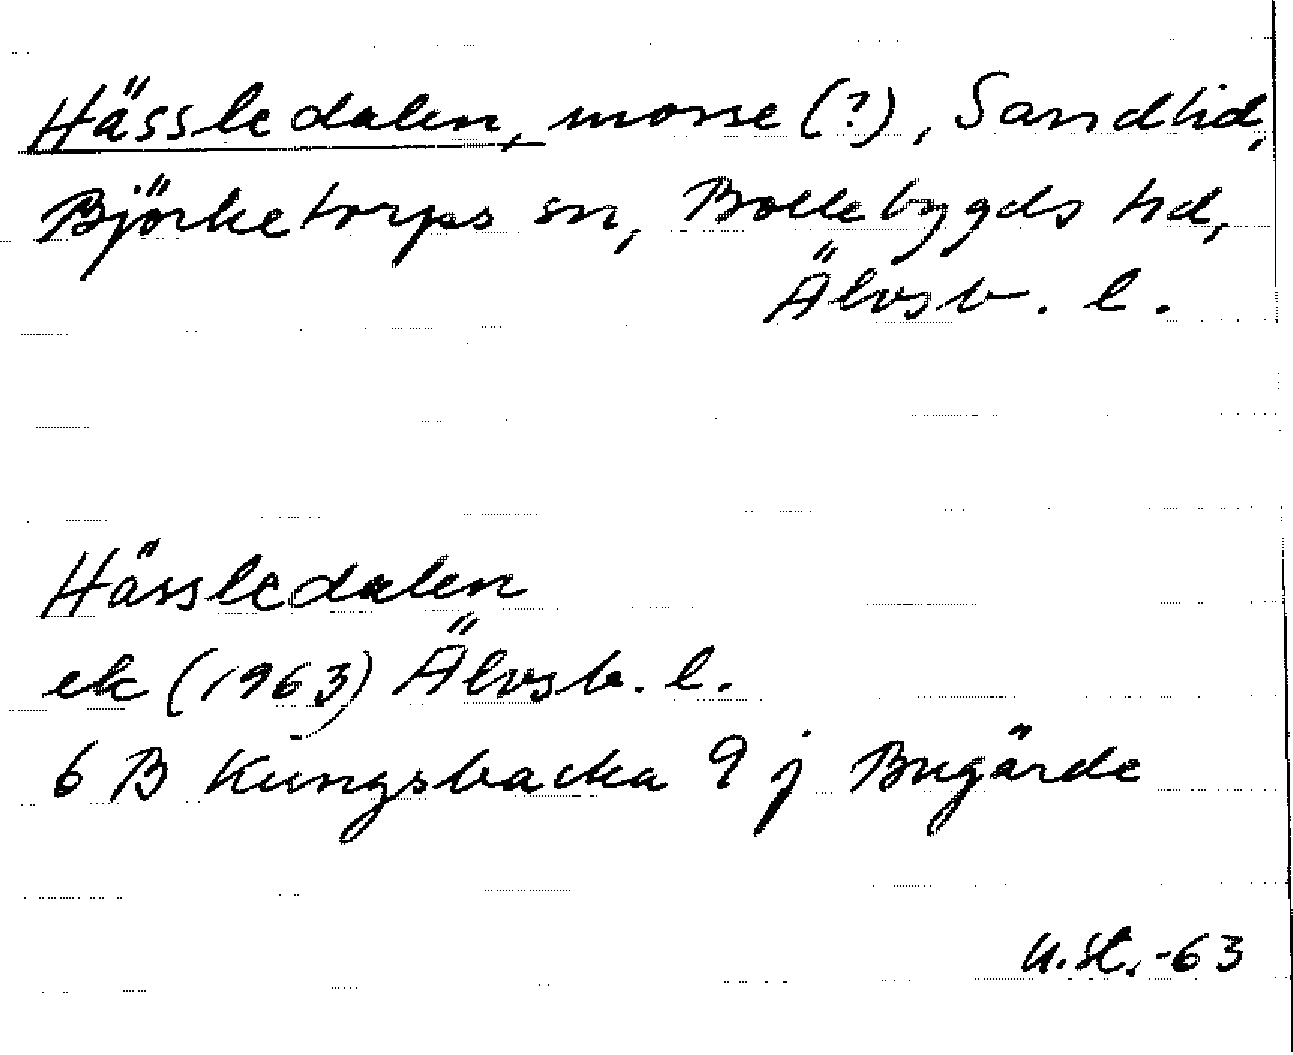 Hässledalen, mosse (?), Sandhid,
Björketorps sn, Bollebygds hd,
Älvsb. l.
Hässledalen
ek (1963) Älvsb. l.
6 B Kungsbacka 9 j Bugärde
-63